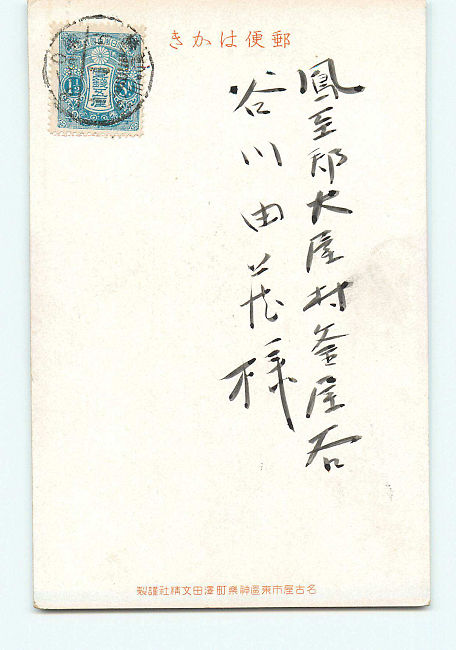 郵便はかき
鳳至郡大屋村釜屋谷
谷川由 様
名古屋市東區神樂町澤田文精社謹製
壹錢五厘